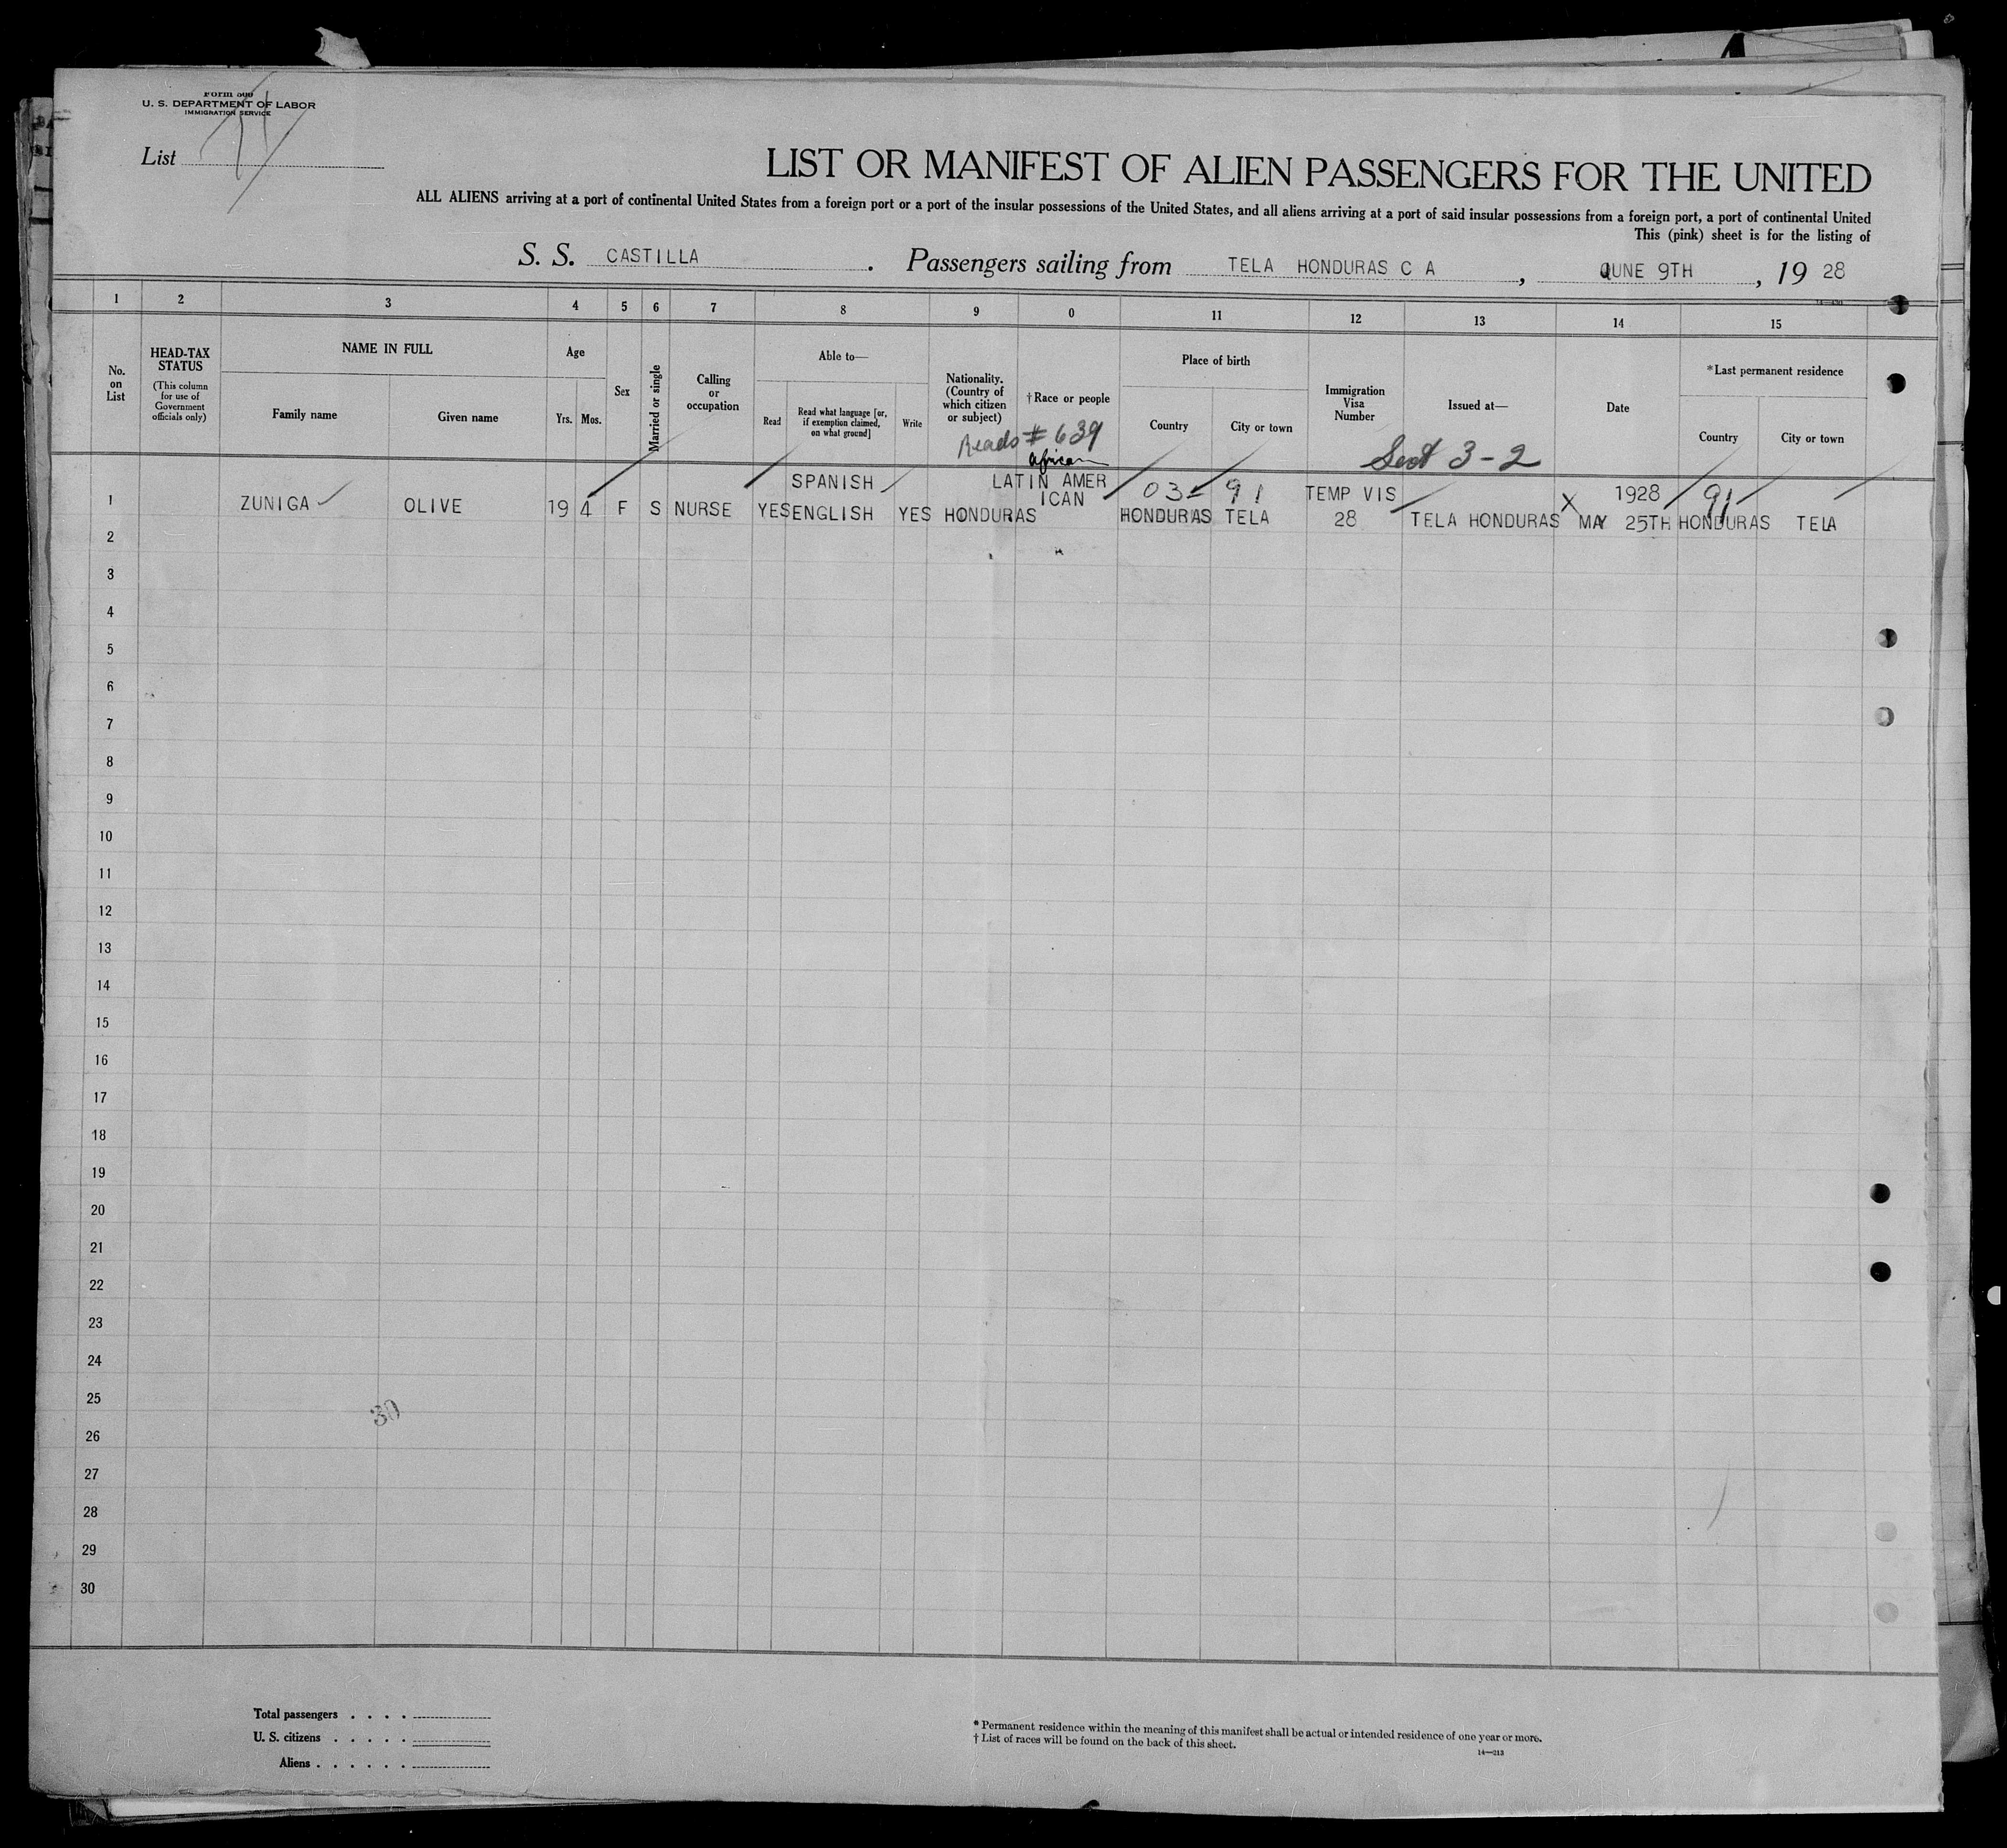 Form 500
U. S. DEPARTMENT OF LABOR
IMMIGRATION SERVICE
List
LIST OR MANIFEST OF ALIEN PASSENGERS FOR THE UNITED
ALL ALIENS arriving at a port of continental United States from a foreign port or a port of the insular possessions of the United States, and all aliens arriving at a port of said insular possessions from a foreign port, a port of continental United
This (pink) sheet is for the listing of
S. S. CASTILLA. Passengers sailing from TELA HONDURAS C A, JUNE 9TH, 19 28
1 2 3 4 5 6 7 8 9 0 11 12 13 14 15
No. on List
HEAD-TAX STATUS
(This column for use of Government officials only)
NAME IN FULL
Family name
Given name
Age
Yrs. Mos.
Sex
Married or single
Calling or occupation
Able to—
Read
Read what language [or, if exemption claimed, on what ground]
Write
Nationality. (Country of which citizen or subject)
†Race or people
Place of birth
Country
City or town
Immigration Visa Number
Issued at—
Date
*Last permanent residence
Country
City or town
Reads # 639
African
Sect 3-2
SPANISH LATIN AMER 03 - 91 TEMP VIS X 1928 91
ICAN
1 ZUNIGA OLIVE 19 4 F S NURSE YES ENGLISH YES HONDURAS HONDURAS TELA 28 TELA HONDURAS MAY 25TH HONDURAS TELA
2
3
4
5
6
7
8
9
10
11
12
13
14
15
16
17
18
19
20
21
22
23
24
25
30
26
27
28
29
30
Total passengers . . . .
U. S. citizens . . . . .
Aliens . . . . . .
* Permanent residence within the meaning of this manifest shall be actual or intended residence of one year or more.
† List of races will be found on the back of this sheet.
14—213